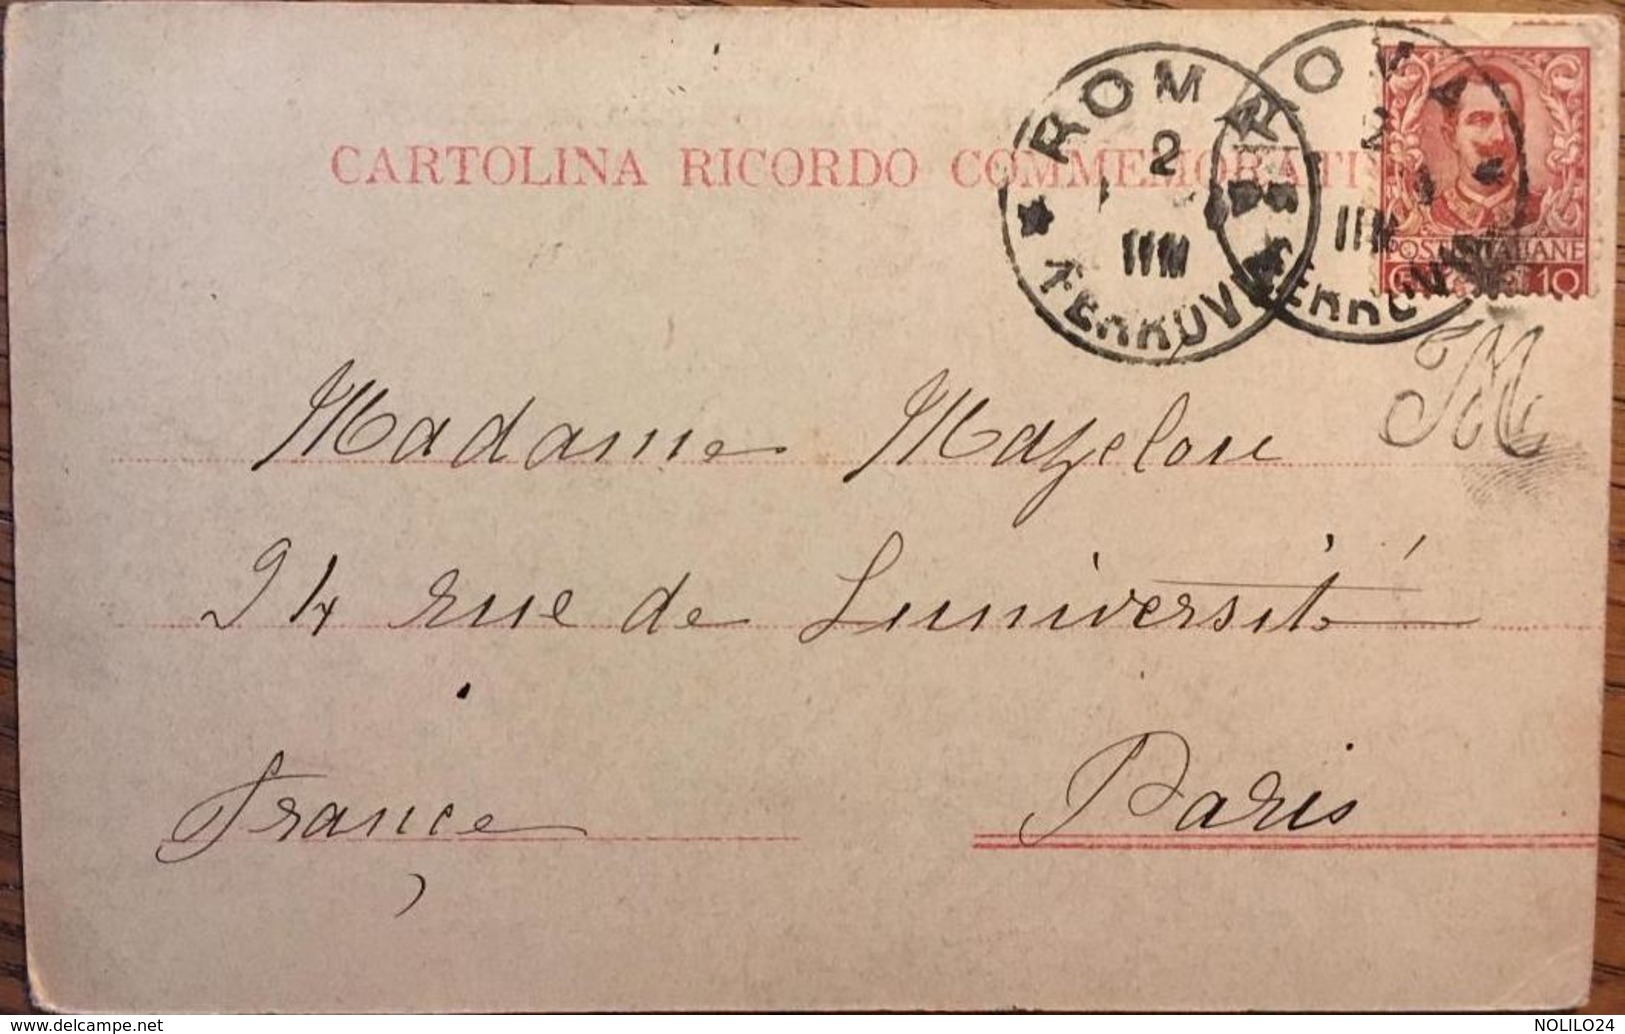 CARTOLINA RICORDO COMMEMORATI
ROMA
2
FERROVIA
ROMA
2
FERROVIA
POSTE ITALIANE
10
M
Madame Mazelou
24 rue de Luniversité
Paris
France
www.delcampe.net
NOLILO24